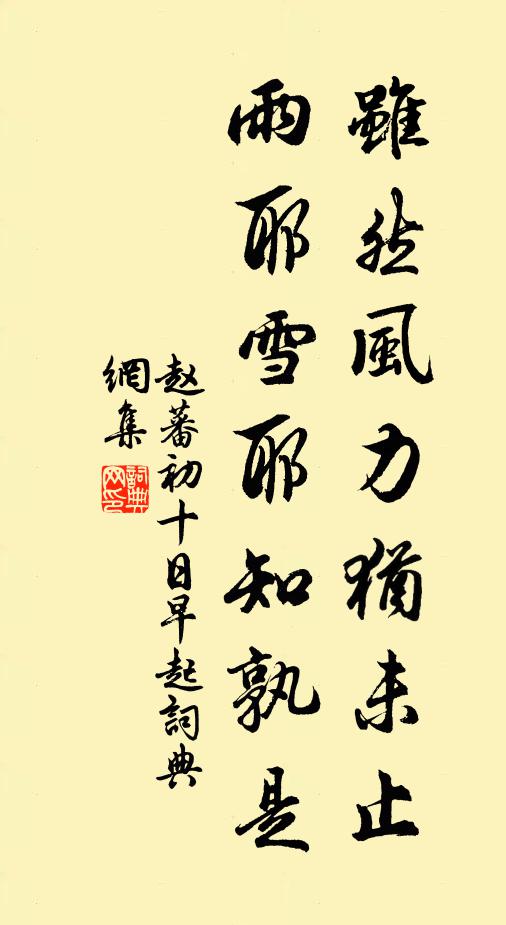 雖然風力猶未止
雨耶雪耶知孰是
赵蕃初十日早起詞典
網集
詞典網印